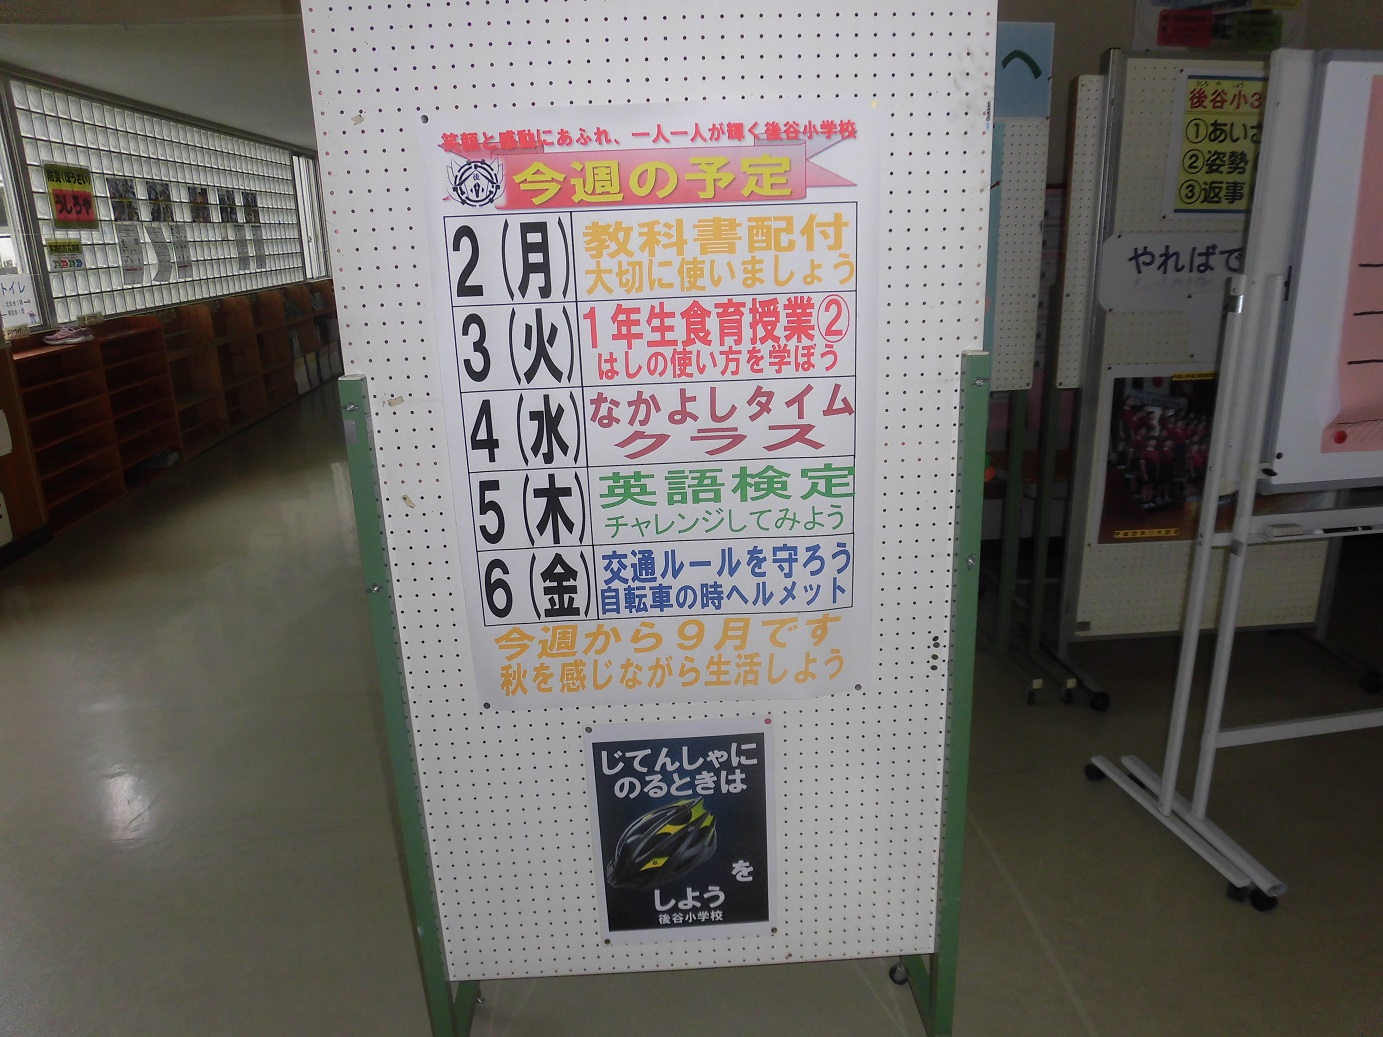 笑顔と感動にあふれ、一人一人が輝く後谷小学校
今週の予定
2（月）
教科書配付
大切に使いましょう
3（火）
１年生食育授業②
はしの使い方を学ぼう
4（水）
なかよしタイム
クラス
5（木）
英語検定
チャレンジしてみよう
6（金）
交通ルールを守ろう
自転車の時ヘルメット
今週から９月です
秋を感じながら生活しよう
じてんしゃに
のるときは
を
しよう
後谷小学校
うしろや
トイレ
へ
後谷小3
①あいさ
②姿勢
③返事
やればで